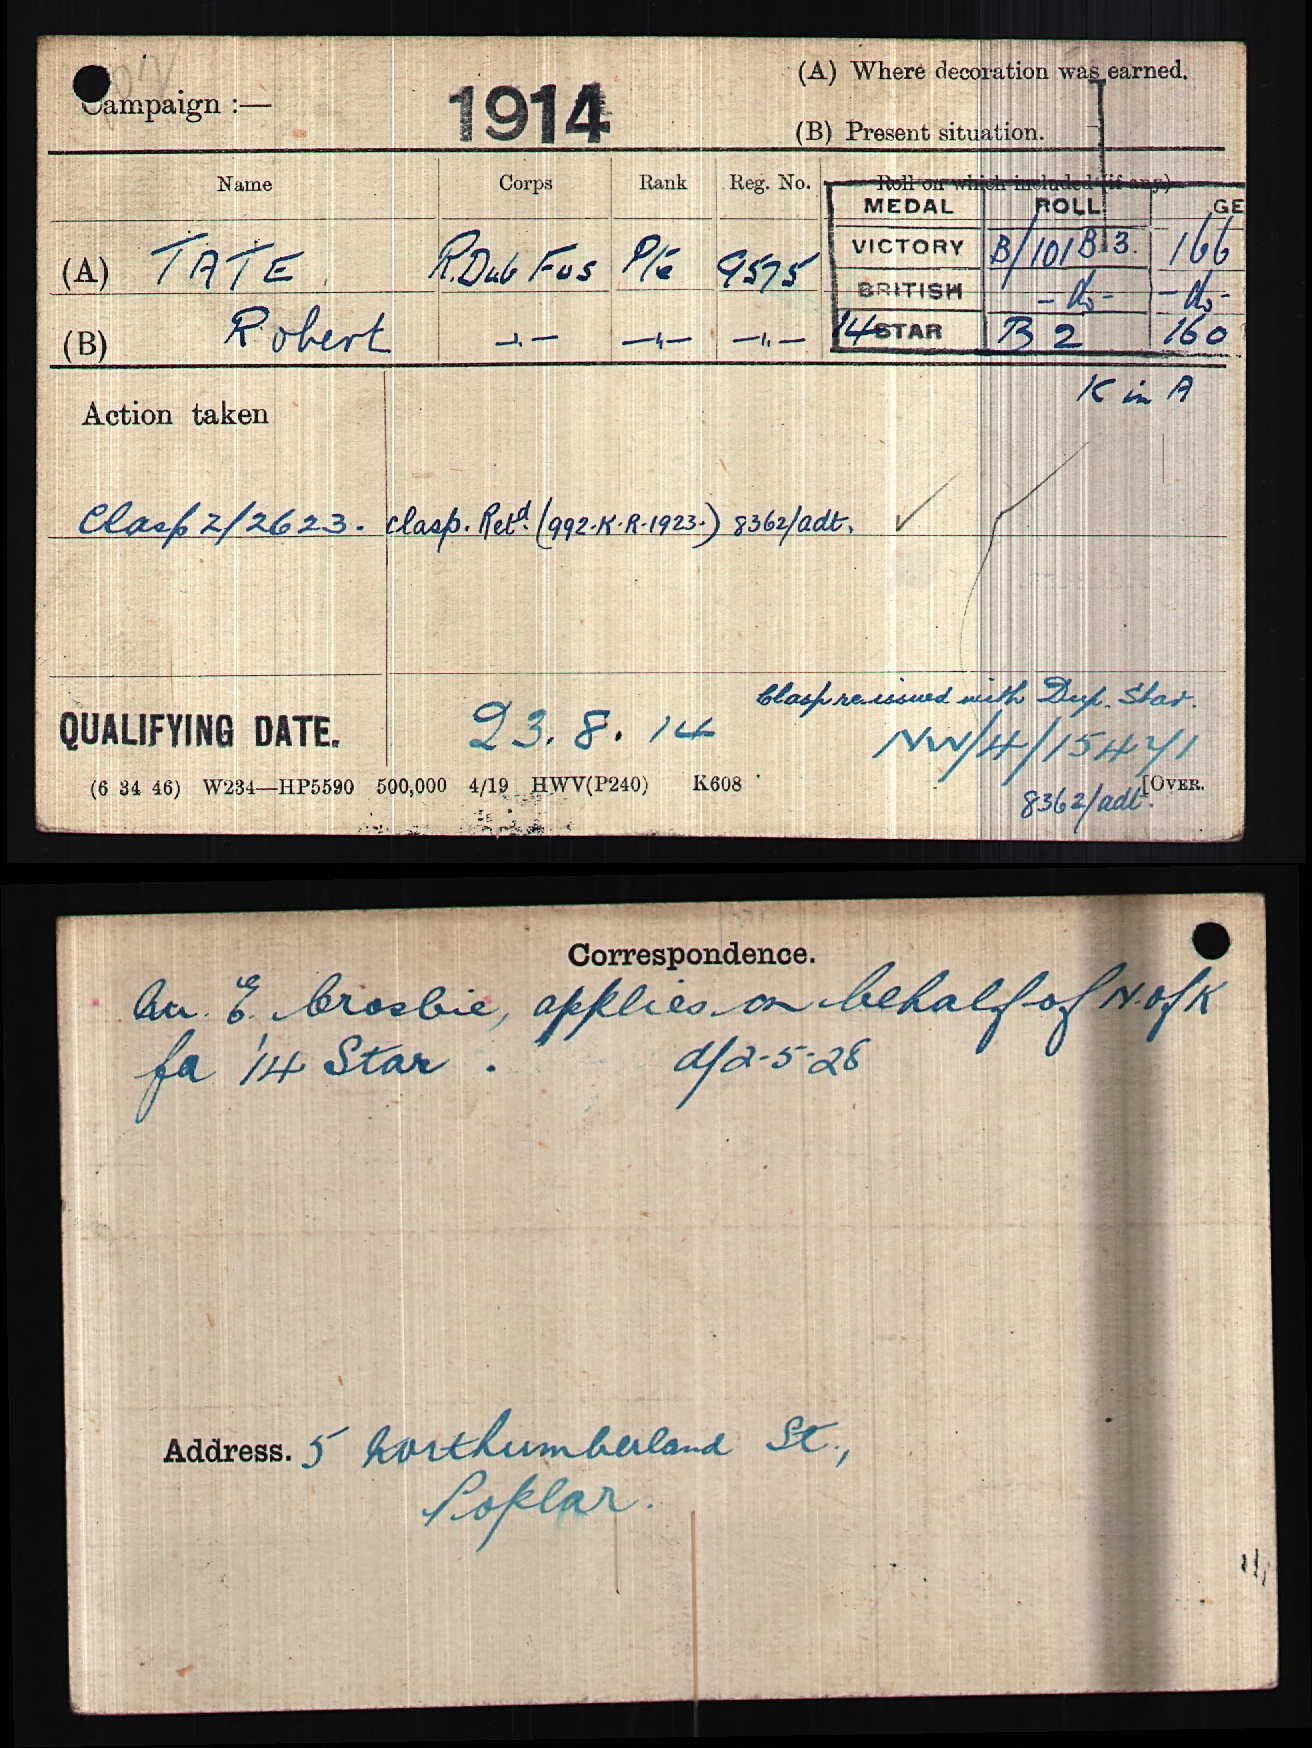 (A) Where decoration was earned.
Campaign :— 1914
(B) Present situation.
Name Corps Rank Reg. No. Roll on which included (if any)
MEDAL ROLL GE
(A) TATE R.Dub Fus Pte 9575 VICTORY B/101 B 3. 166
BRITISH -do- -do-
(B) Robert —"— —"— —"— 14 STAR B 2 160
K in A
Action taken
Clasp Z/2623. Clasp. Retd. (992-K-R-1923-) 8362/adt.
Clasp re-issued with Dup. Star.
QUALIFYING DATE. 23. 8. 14 NW/4/15471
(6 34 46) W234—HP5590 500,000 4/19 HWV(P240) K608 [OVER.
8362/adt.
Correspondence.
E. Crosbie, applies on behalf of N. of K
for '14 Star. d/2-5-28
Address. 5 Northumberland St.,
Poplar.